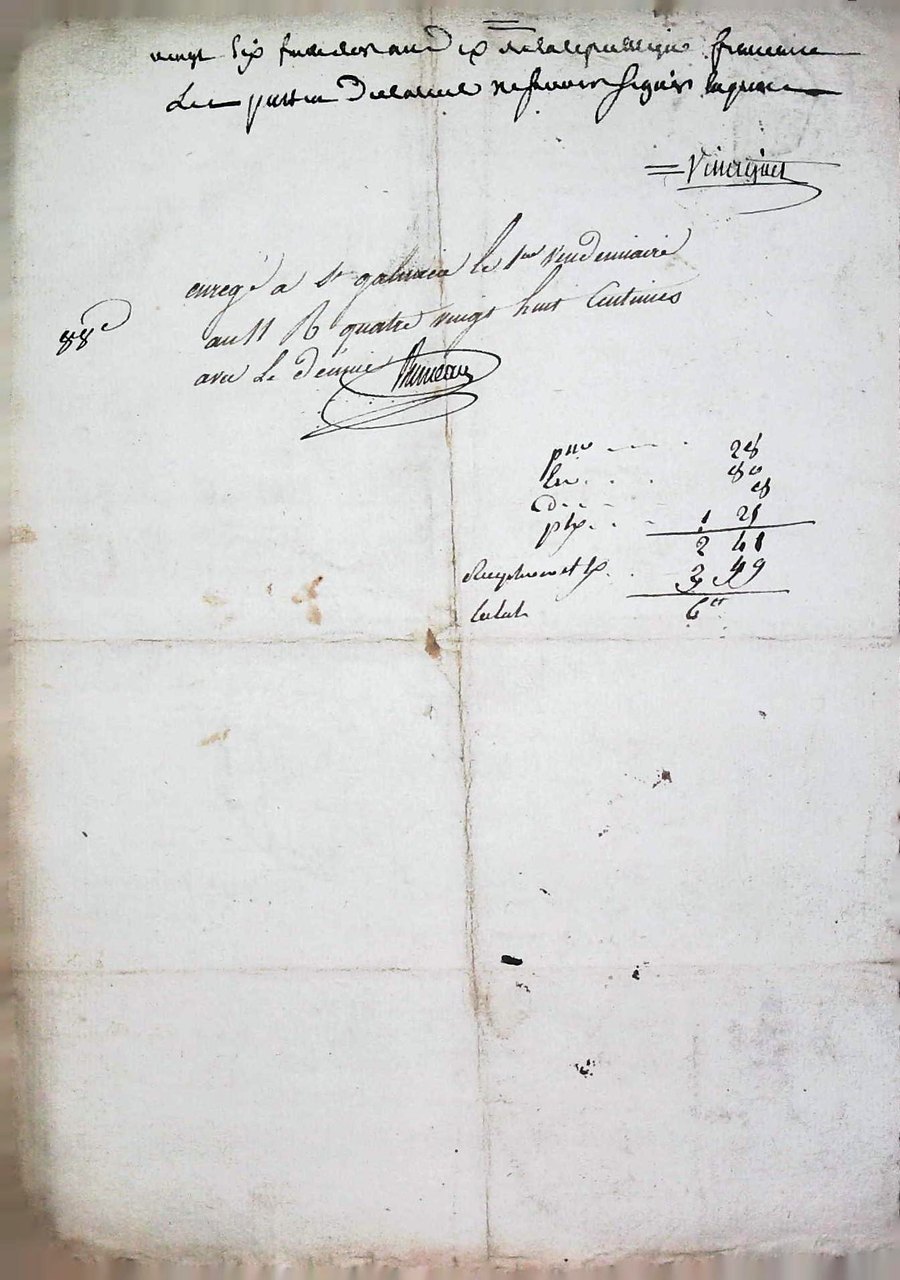 vingt six fructidor an dix de la republique francaise
les parties declarent ne scavoir signer
Vincent
enregé a St galmier le 1er Vendemiaire
an 11 R quatre vingt huit Centimes
avec le decime Bruneau
88c
28
80
8
1 25
2 41
3 59
total 6